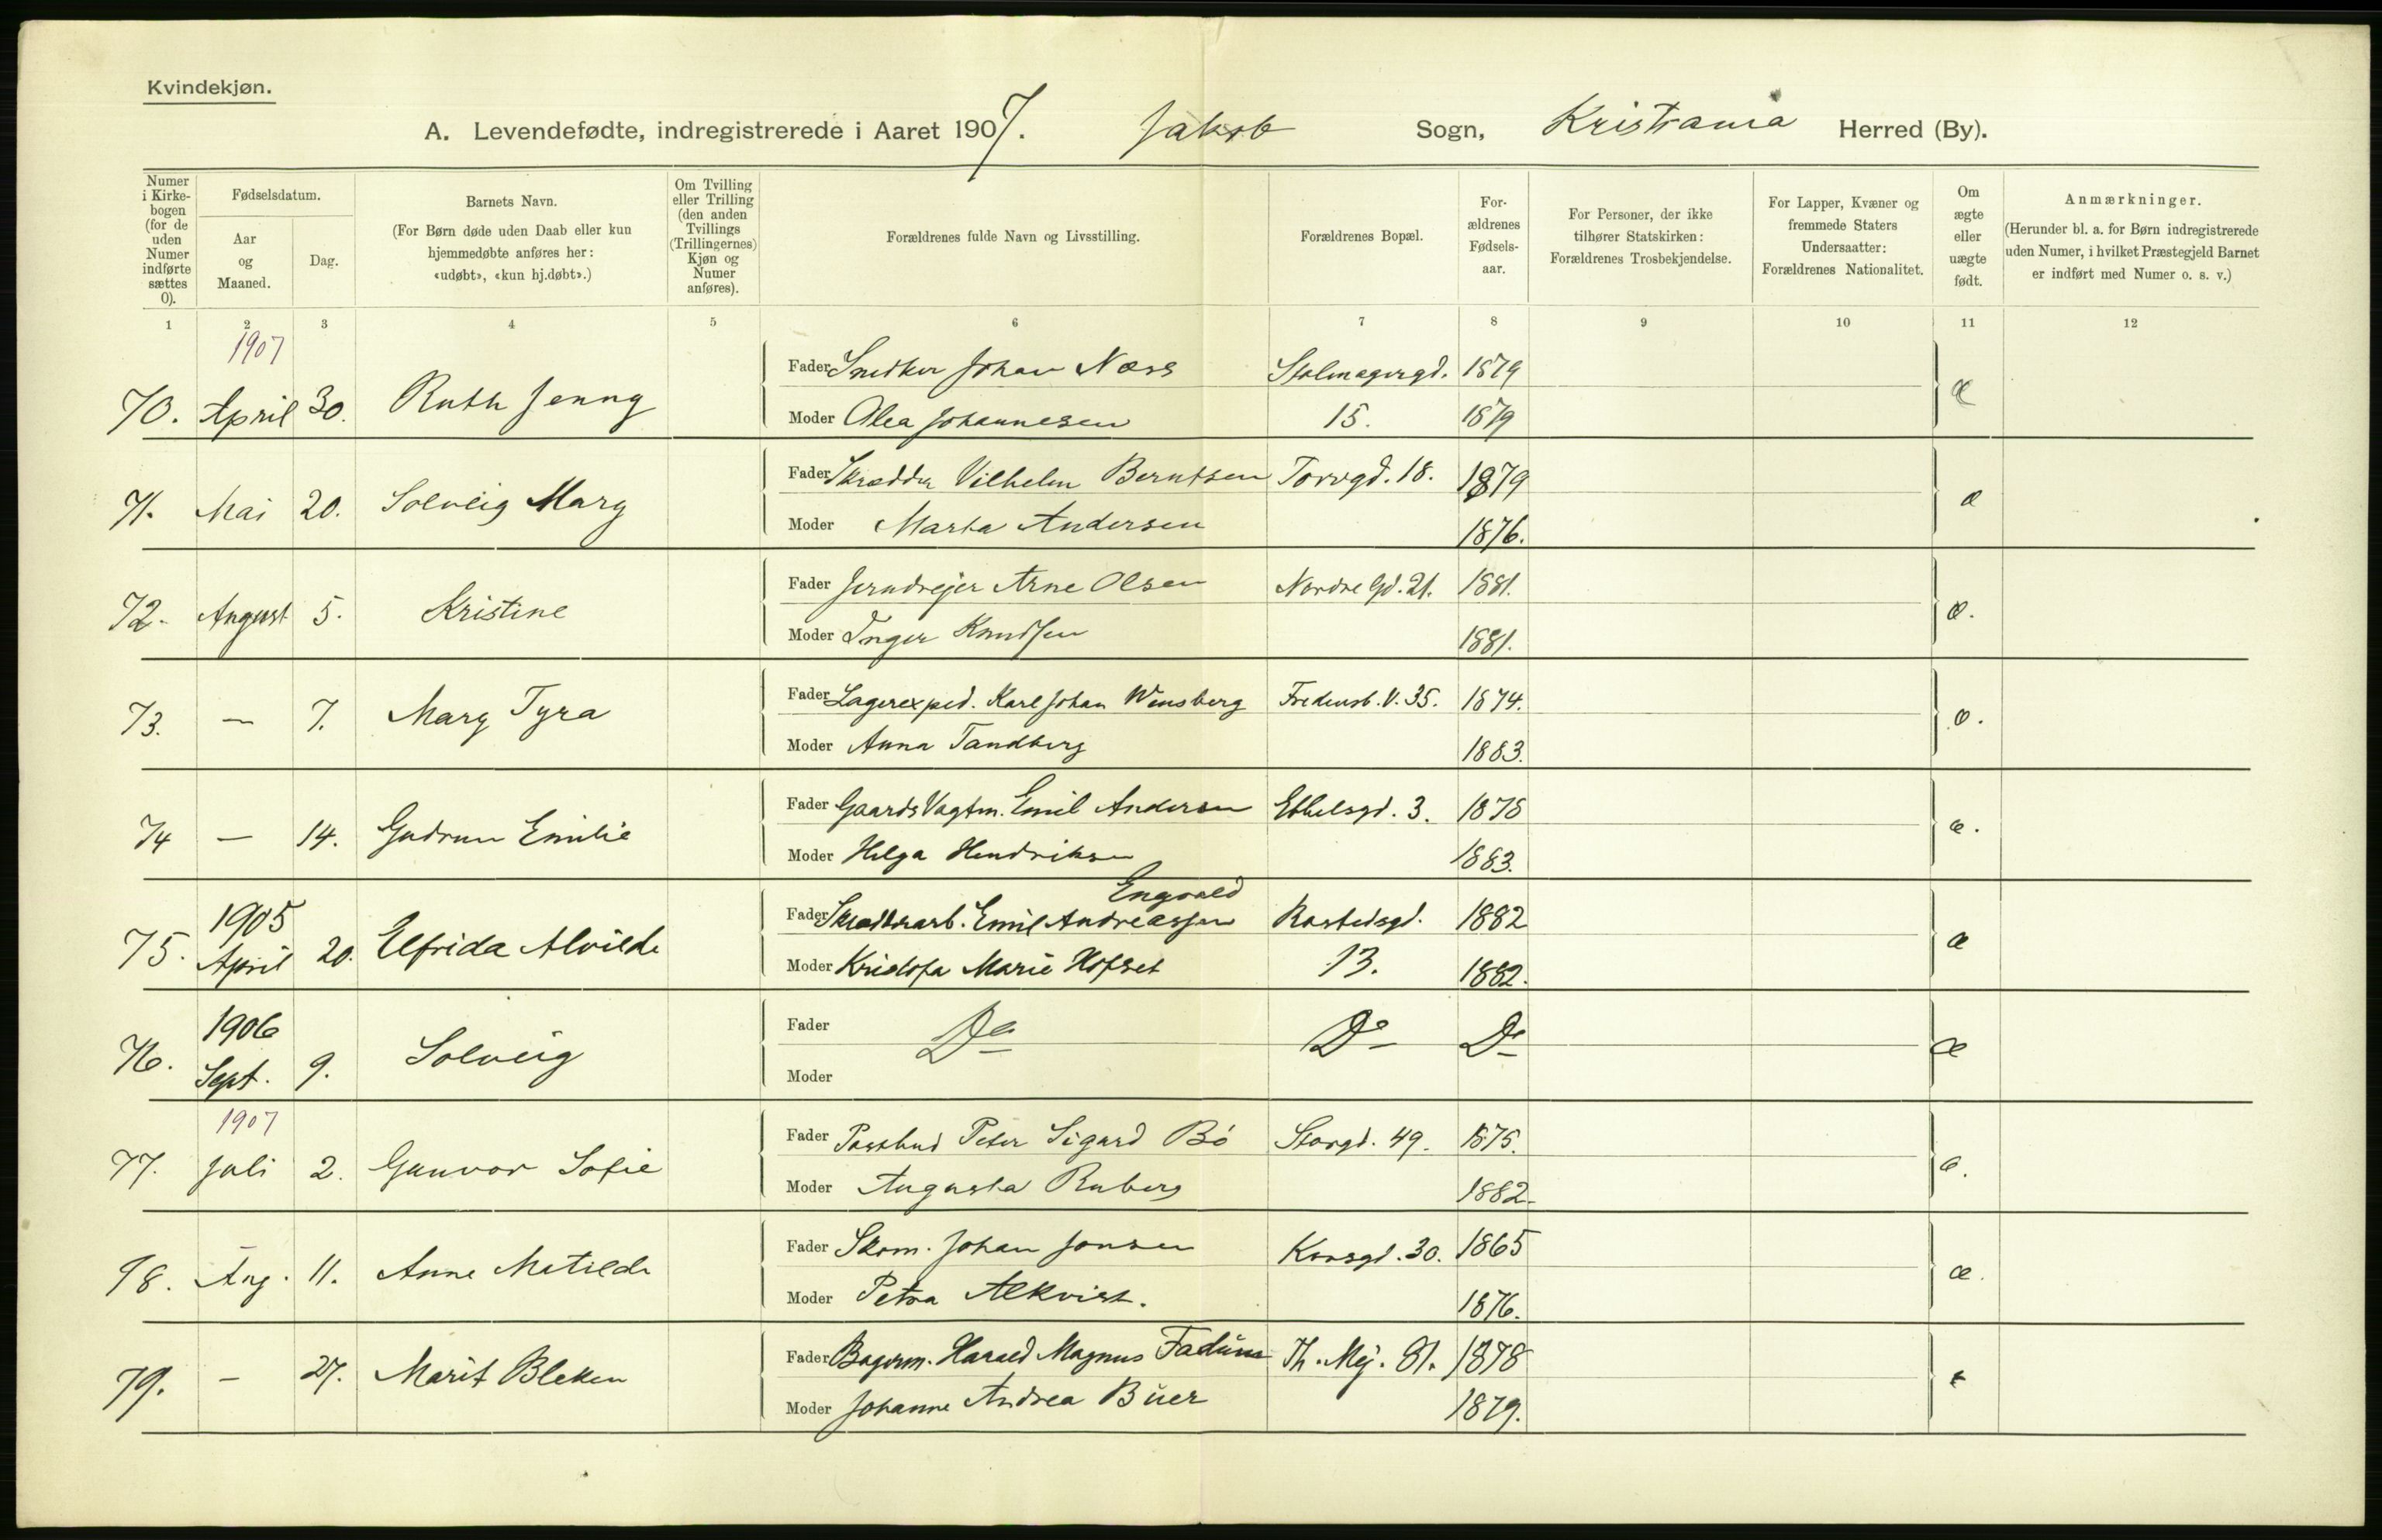 Kvindekjøn.
A. Levendefødte, indregistrerede i Aaret 1907. Jakob Sogn, Kristiania Herred (By).
Numer i Kirkebogen (for de uden Numer indførte sættes 0).
Fødselsdatum.
Aar og Maaned.
Dag.
Barnets Navn.
(For Børn døde uden Daab eller kun hjemmedøbte anføres her: «udøbt», «kun hj.døbt».)
Om Tvilling eller Trilling (den anden Tvillings (Trillingernes) Kjøn og Numer anføres).
Forældrenes fulde Navn og Livsstilling.
Forældrenes Bopæl.
Forældrenes Fødselsaar.
For Personer, der ikke tilhører Statskirken: Forældrenes Trosbekjendelse.
For Lapper, Kvæner og fremmede Staters Undersaatter: Forældrenes Nationalitet.
Om ægte eller uægte født.
Anmærkninger.
(Herunder bl. a. for Børn indregistrerede uden Numer, i hvilket Præstegjeld Barnet er indført med Numer o. s. v.)
1 2 3 4 5 6 7 8 9 10 11 12
1907
70. April 30. Ruth Jenny Fader Snedker Johan Næss Stolmagergd. 1879 æ
Moder Alea Johannesen 15. 1879
71. Mai 20. Solveig Mary Fader Skrædder Vilhelm Berntsen Torvgd. 18. 1879 æ
Moder Marta Andersen 1876.
72. August 5. Kristine Fader Jerndrejer Arne Olsen Nordre Gd. 21. 1881. æ.
Moder Inger Knudsen 1881.
73. — 7. Mary Tyra Fader Lagerexped. Karl Johan Wensberg Fredensb. V. 35. 1874. æ.
Moder Anna Tandberg 1883.
74 — 14. Gudrun Emilie Fader Gaards Vagtm. Emil Andersen Ebbelsgd. 3. 1878 æ.
Moder Helga Hendriksen 1883.
Engvald
1905
75. April 20. Elfrida Alvilde Fader Skrædderarb. Emil Andreassen Rostedsgd. 1882 æ
Moder Kristofa Marie Hofset 13. 1882.
1906
76. Sept. 9. Solveig Fader Do Do Do æ
Moder
1907
77. Juli 2. Gunvor Sofie Fader Postbud Peter Sigurd Bö Storgd. 49. 1875. æ.
Moder Augusta Ruberg 1882.
78. Aug. 11. Anne Matilde Fader Skom. Johan Jonsen Korsgd. 30. 1865 æ.
Moder Petra Alkvist. 1876.
79. — 27. Marit Bleken Fader Bagerm. Harald Magnus Fadum Th. Mej. 81. 1878
Moder Johanne Andrea Buer 1879.